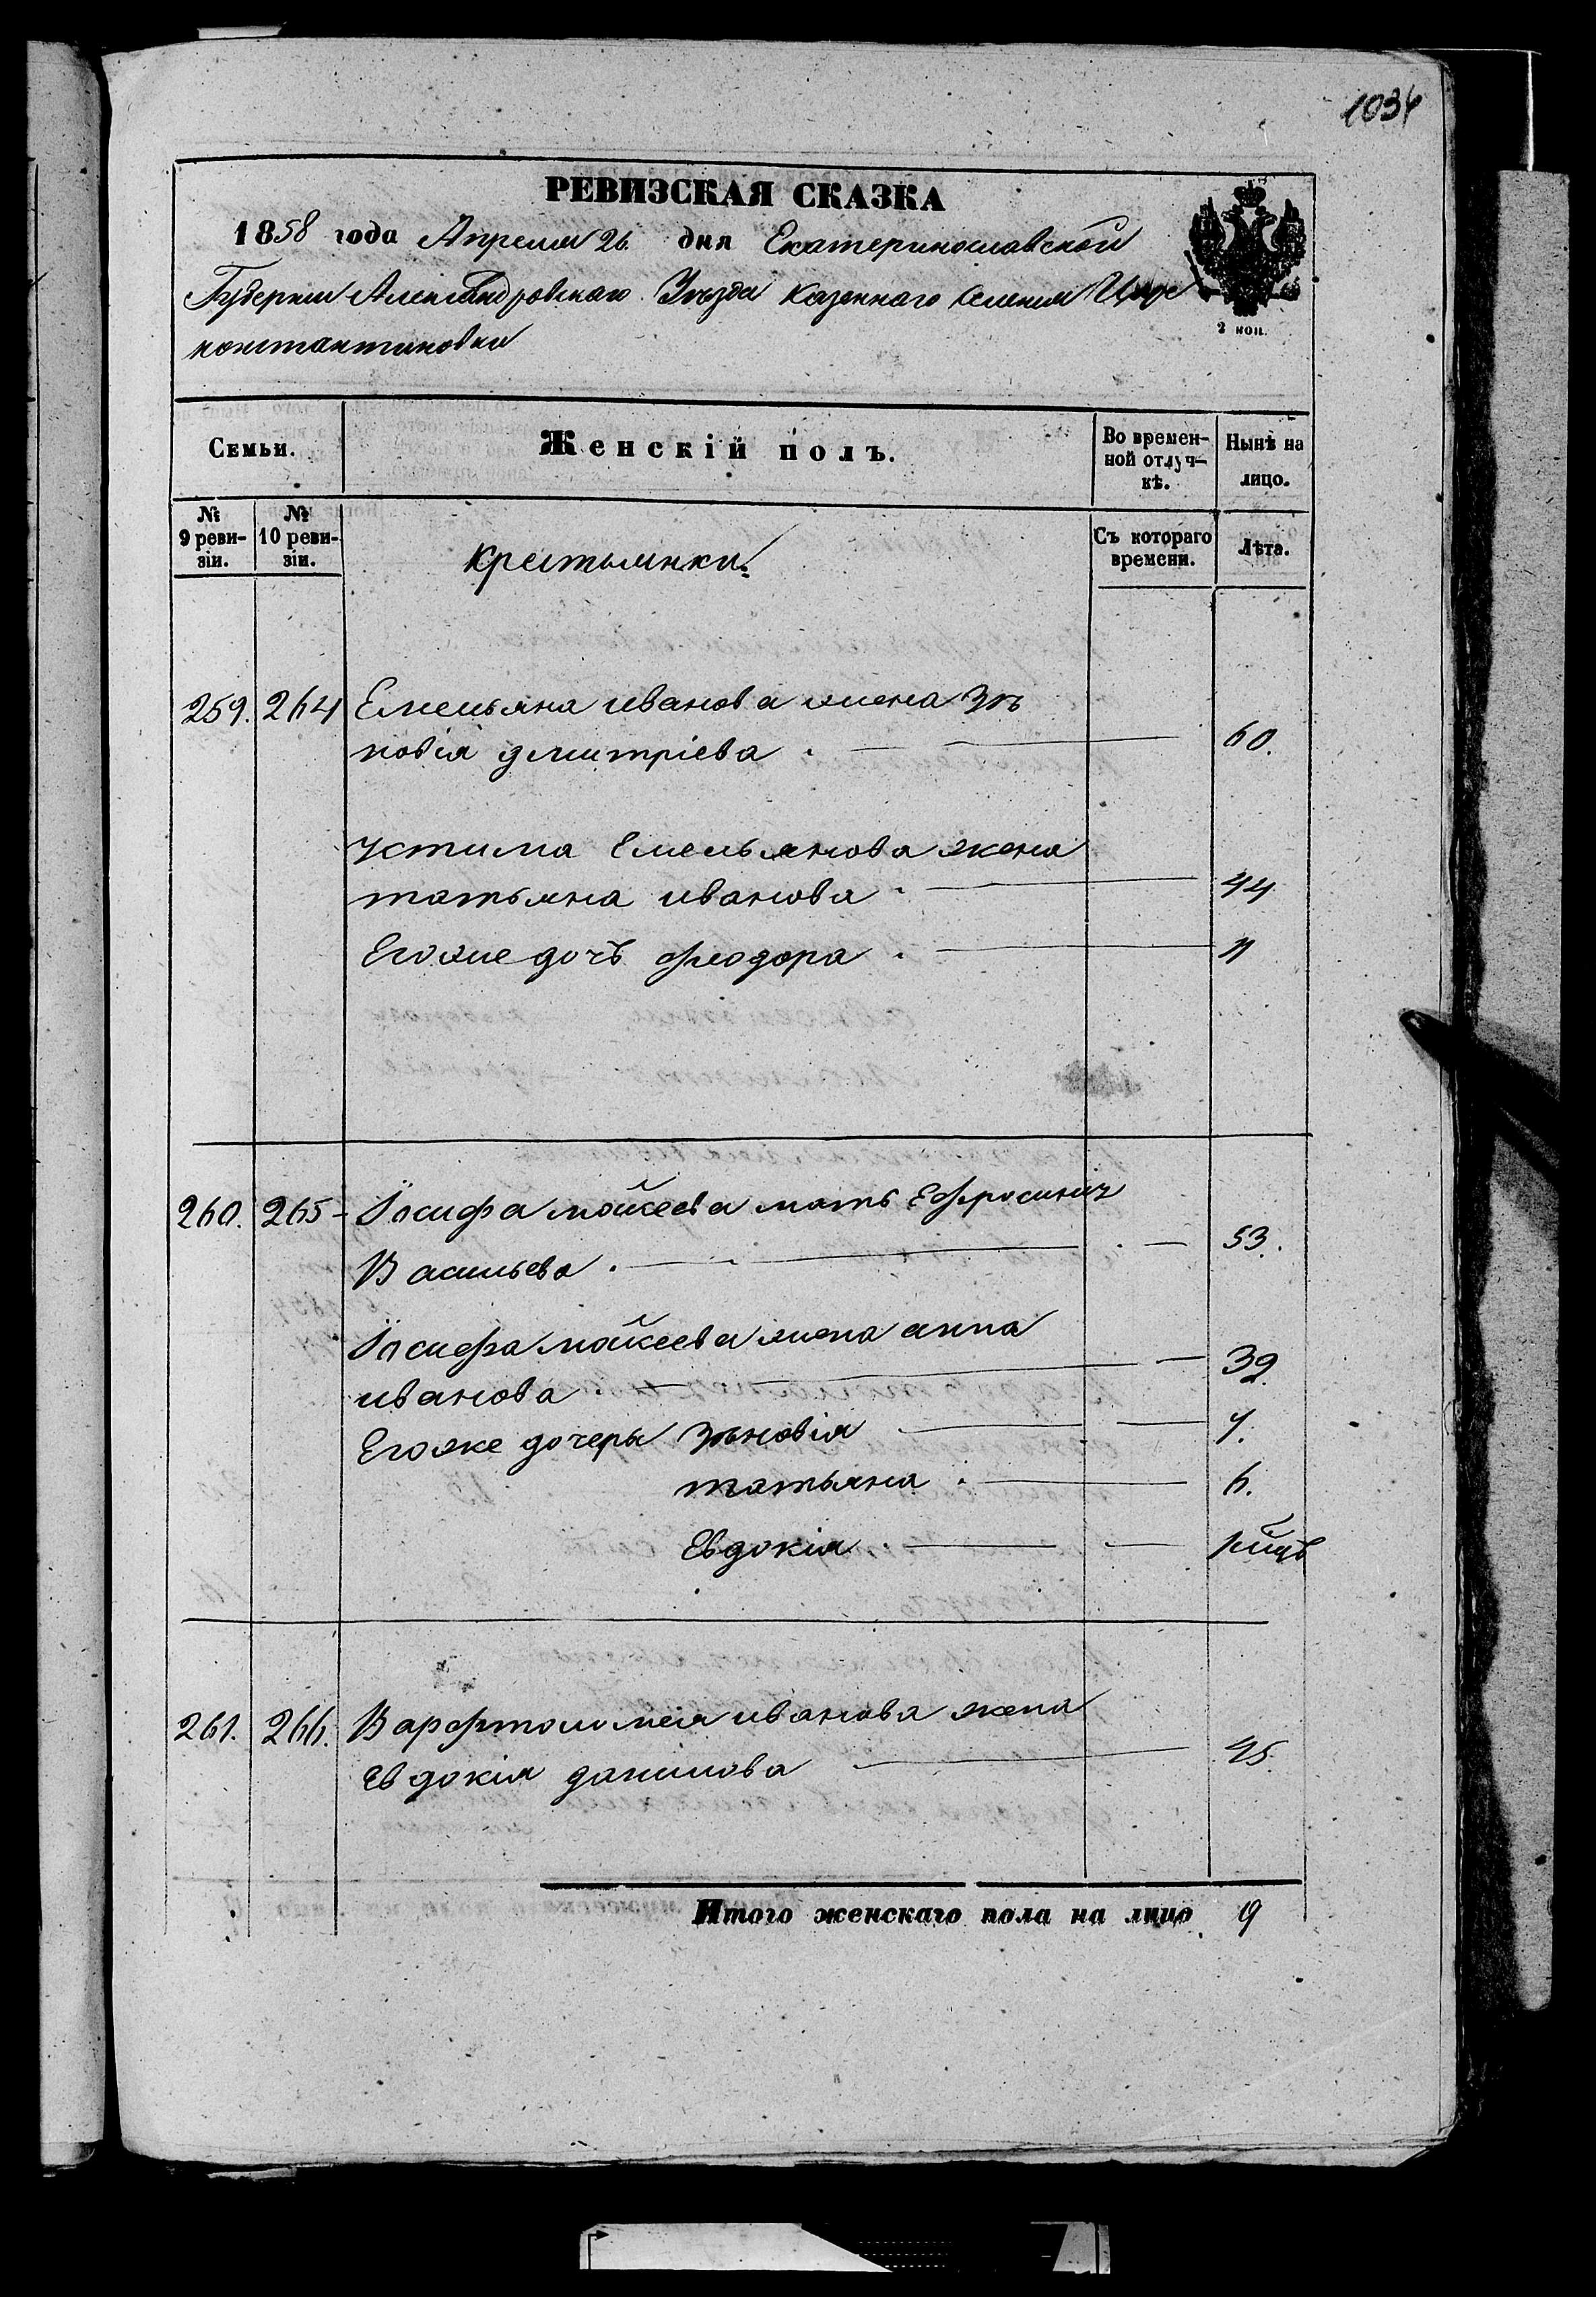 1034
РЕВИЗСКАЯ СКАЗКА
1858 года Апреля 26 дня Екатеринославской
Губернии Александровскаго Уѣзда Казеннаго Селенія Царе
константиновки
2 коп.
Семьи.
Женскій полъ.
Во времен-
ной отлуч-
кѣ.
Нынѣ на
лицо.
№
9 реви-
зіи.
№
10 реви-
зіи.
крестьянки.
Съ котораго
времени.
Лѣта.
259. 264 Емельяна иванова жена Зѣ
новія дмитріева 60.
Устима Емельянова жена
татьяна иванова 44
Егоже дочь феодора 11
260. 265 Іосифа мойсеева мать Ефросинія
Васильева 53.
Іосифа мойсеева жена анна
иванова 32.
Егоже дочеры Зѣновія
татьяна 6.
Евдокія
261. 266. Варфтоломея иванова жена
Евдокія данилова 45.
Итого женскаго пола на лицо 9